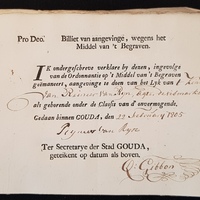 Pro Deo. Billiet van aangevinge, wegens het
Middel van 't Begraven.
IK ondergeschreve verklare by dezen, ingevolge
van de Ordonnantie op 't Middel van 't Begraven
geëmaneert, aangevinge te doen van het Lyk van
van Reinier van Ryn,
als gehorende onder de Classis van d'onvermogende.
Gedaan binnen GOUDA, den 22 February 1805
Reynier van Ryn
Ter Secretarye der Stad GOUDA,
getekent op datum als boven,